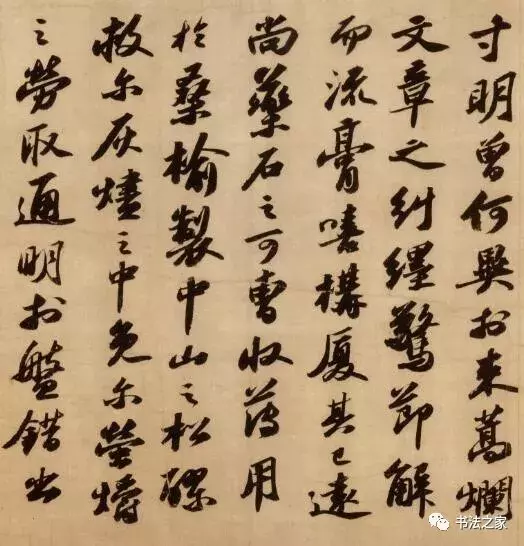 寸明曾何異於束蒿爛
文章之糾纆驚節解
而流膏嘻構厦其已遠
尚藥石之可曹收薄用
於桑榆製中山之松醪
救尔灰燼之中免尔螢爝
之勞取通明於盤錯出
书法之家